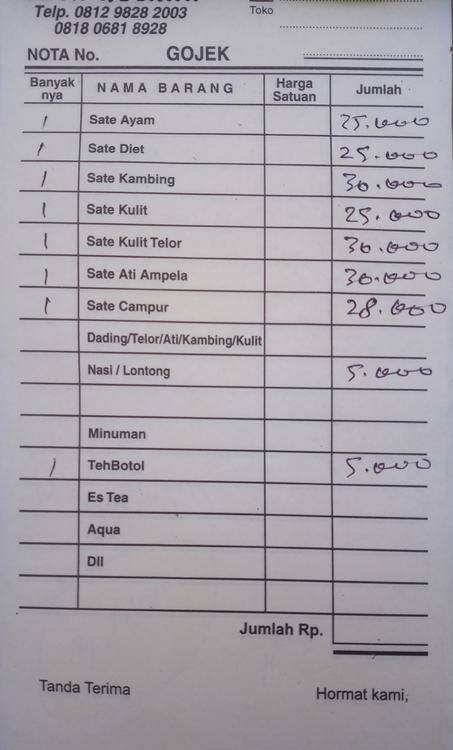 Telp. 0812 9828 2003
Toko
0818 0681 8928
NOTA No. GOJEK
Banyak nya NAMA BARANG Harga Satuan Jumlah
1 Sate Ayam 25.000
1 Sate Diet 25.000
1 Sate Kambing 30.000
1 Sate Kulit 25.000
1 Sate Kulit Telor 30.000
1 Sate Ati Ampela 30.000
1 Sate Campur 28.000
Dading/Telor/Ati/Kambing/Kulit
Nasi / Lontong 5.000
Minuman
1 TehBotol 5.000
Es Tea
Aqua
Dll
Jumlah Rp.
Tanda Terima Hormat kami,